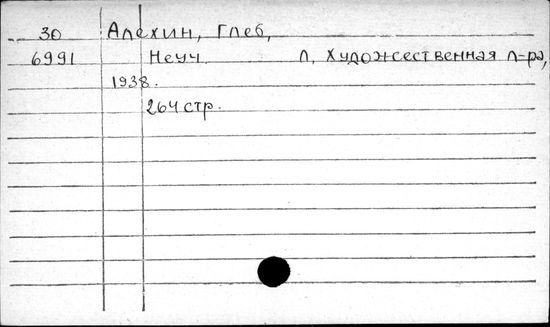 30 Алехин, Глеб,
6991 Неуч. Л, Художественная л-ра,
1938.
264 стр.